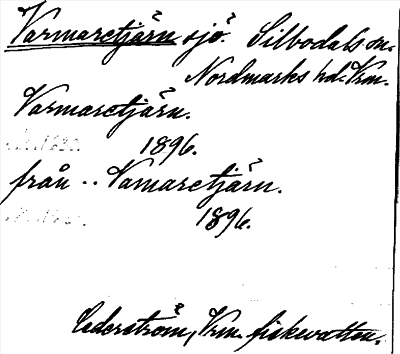 Varmaretjärn sjö. Silbodals sn.
Nordmarks hd. Vrm.
Varmaretjärn.
1896.
från .. Vamaretjärn.
1896.
Cederström, Vrm. fiskevatten.